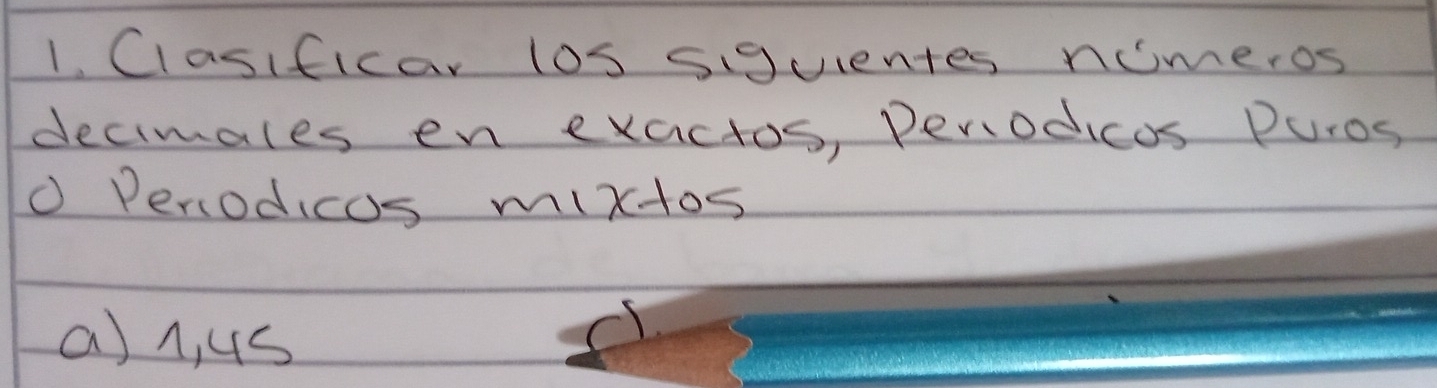 1. Clasificar los siguientes números
decimales en exactos, Periodicos Puros
o Periodicos mixtos
a) 1,45